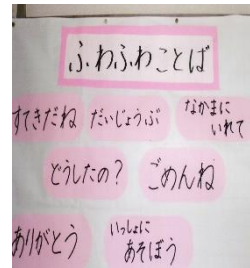 ふわふわことば
すてきだね
だいじょうぶ
なかまに
いれて
どうしたの?
ごめんね
ありがとう
いっしょに
あそぼう